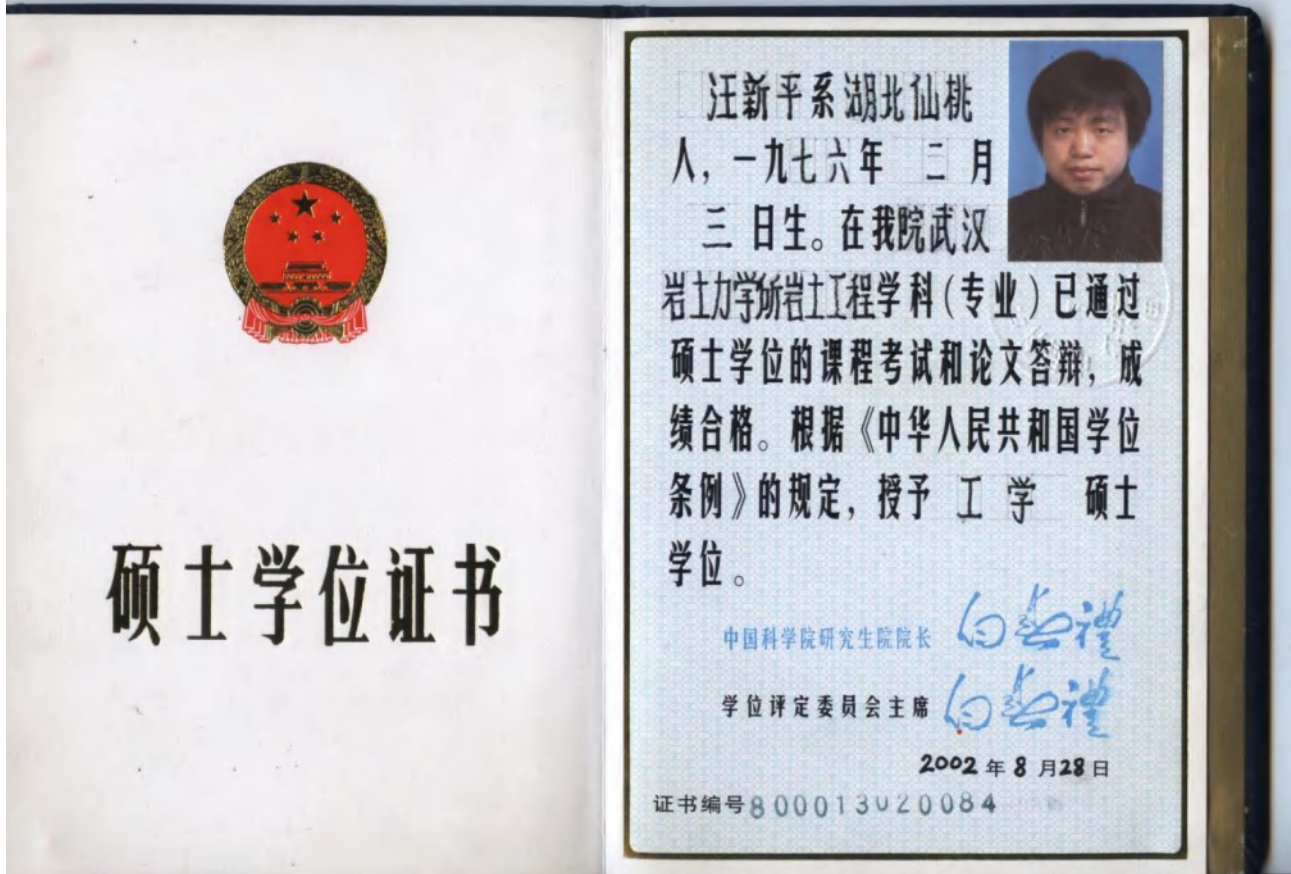 硕士学位证书
汪新平系湖北仙桃
人，一九七六年 二 月
三 日生。在我院武汉
岩土力学所岩土工程学科(专业)已通过
硕士学位的课程考试和论文答辩，成
绩合格。根据《中华人民共和国学位
条例》的规定，授予 工 学 硕士
学位。
中国科学院研究生院院长
学位评定委员会主席
2002 年 8 月 28 日
证书编号 800013020084